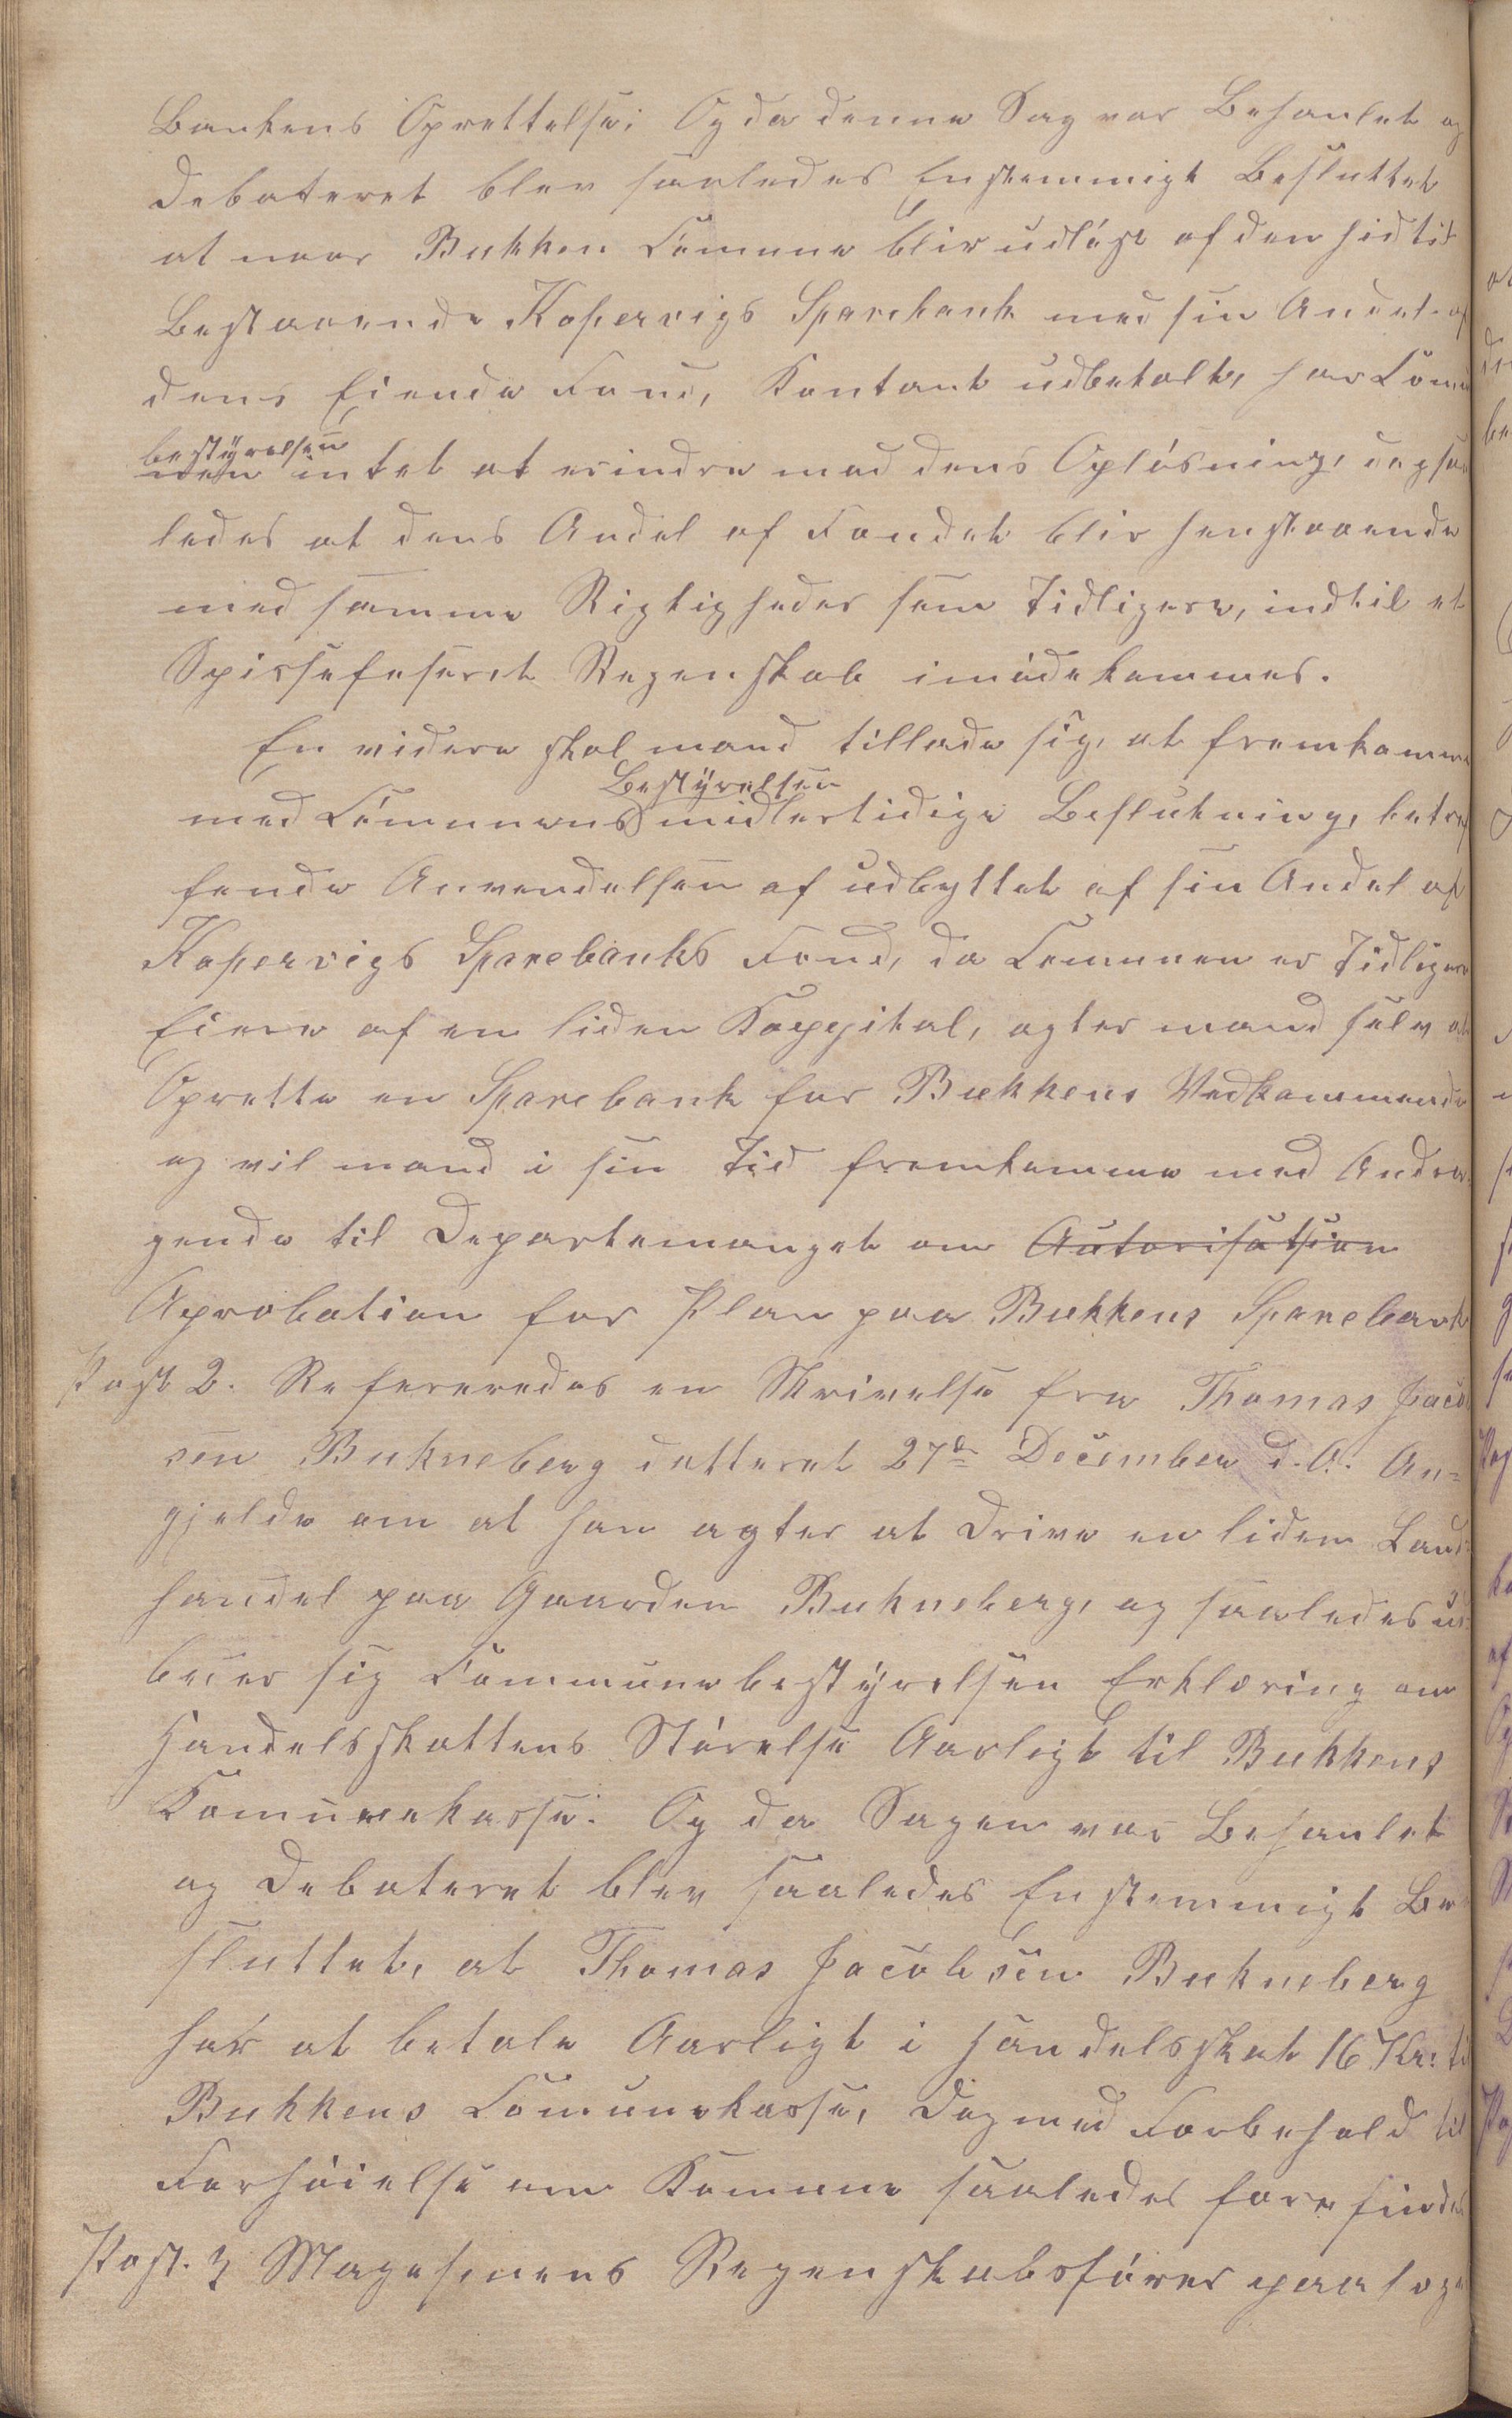 Bankens Oprettelse; Og da denne Sag var Behanlet og
debateret blev saaledes Enstemmigt Besluttet
at naar Bukken Comune blir udløst af den hidtil
Bestaaende Kopervigs Sparebank med sin Andel af
dens Eiende Fond, Kontant udbetalt, har Comu
bestyrelsen
nen intet at erindre mod dens Opløsning, dog saa
ledes at dens Andel af Fondet blir henstaaende
med samme Rigtigheder som Tidligere, indtil et
Regenskab imødekommes.
En videre skal mand tillade sig, at fremkomme
Bestyrelsen
med Comunens midlertidige Beslutning, betref
fende Anvendelsen af udbyttet af sin Andel af
Kopervigs Sparebanks Fond, da Comunen er Tidligere
Eiere af en liden Kappital, agter mand selv at
Oprette en Sparebank for Bukkens Vedkommende
og vil mand i sin Tid fremkomme med Andra
gende til Departemanget om Autorisatsion
Aprobation for Plan paa Bukkens Sparebank
Post 2. Refereredes en Skrivelse fra Thomas Jacob
sen Bukneberg datteret 27de December d.A. An=
gjelde om at han agter at drive en liden Land=
handel paa Gaarden Bukneberg, og saaledes ud
beder sig Communebestyrelsen Erklæring om
Handelsskattens Størelse Aarligt til Bukkens
Komunekasse. Og da Sagen var Behanlet
og Debateret blev saaledes Enstemmigt Be
sluttet, at Thomas Jacobsen Bukneberg
har at betale Aarligt i Handelsskat 16 Kr: til
Bukkens Comunekasse, dog med Forbehold til
Forhøielse om Komune saaledes forefindes
Post. 3 Magesinens Regenskabsfører paalog